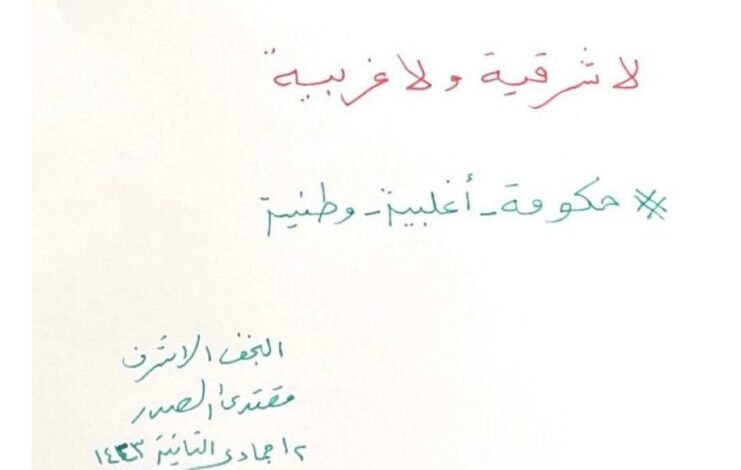 لا شرقية ولا غربية
#حكومة_أغلبية_وطنية
النجف الاشرف
مقتدى الصدر
١٢ جمادى الثانية ١٤٤٣